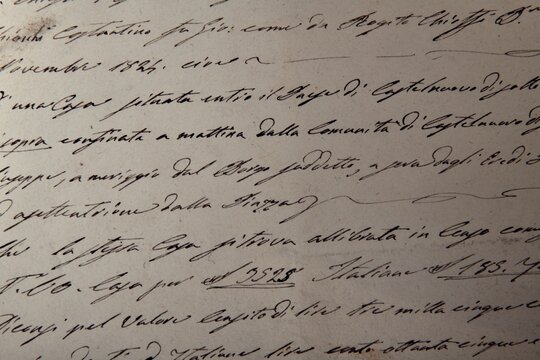 Costantino fu Gio: come da Rogito
Novembre 1824. cioe
d'una Casa situata entro il Paese di Castelnuovo di sotto
sopra confinata a mattina dalla Comunità di Castelnuovo di
a meriggio dal Borgo suddetto, a sera dagli Eredi
a settentrione dalla Piazza
Che la stessa Casa si trova allibrata in
Casa per 3525 Italiane 185.
Dicasi pel Valore Censito di lire tre milla cinque
di Italiane lire cento ottanta cinque